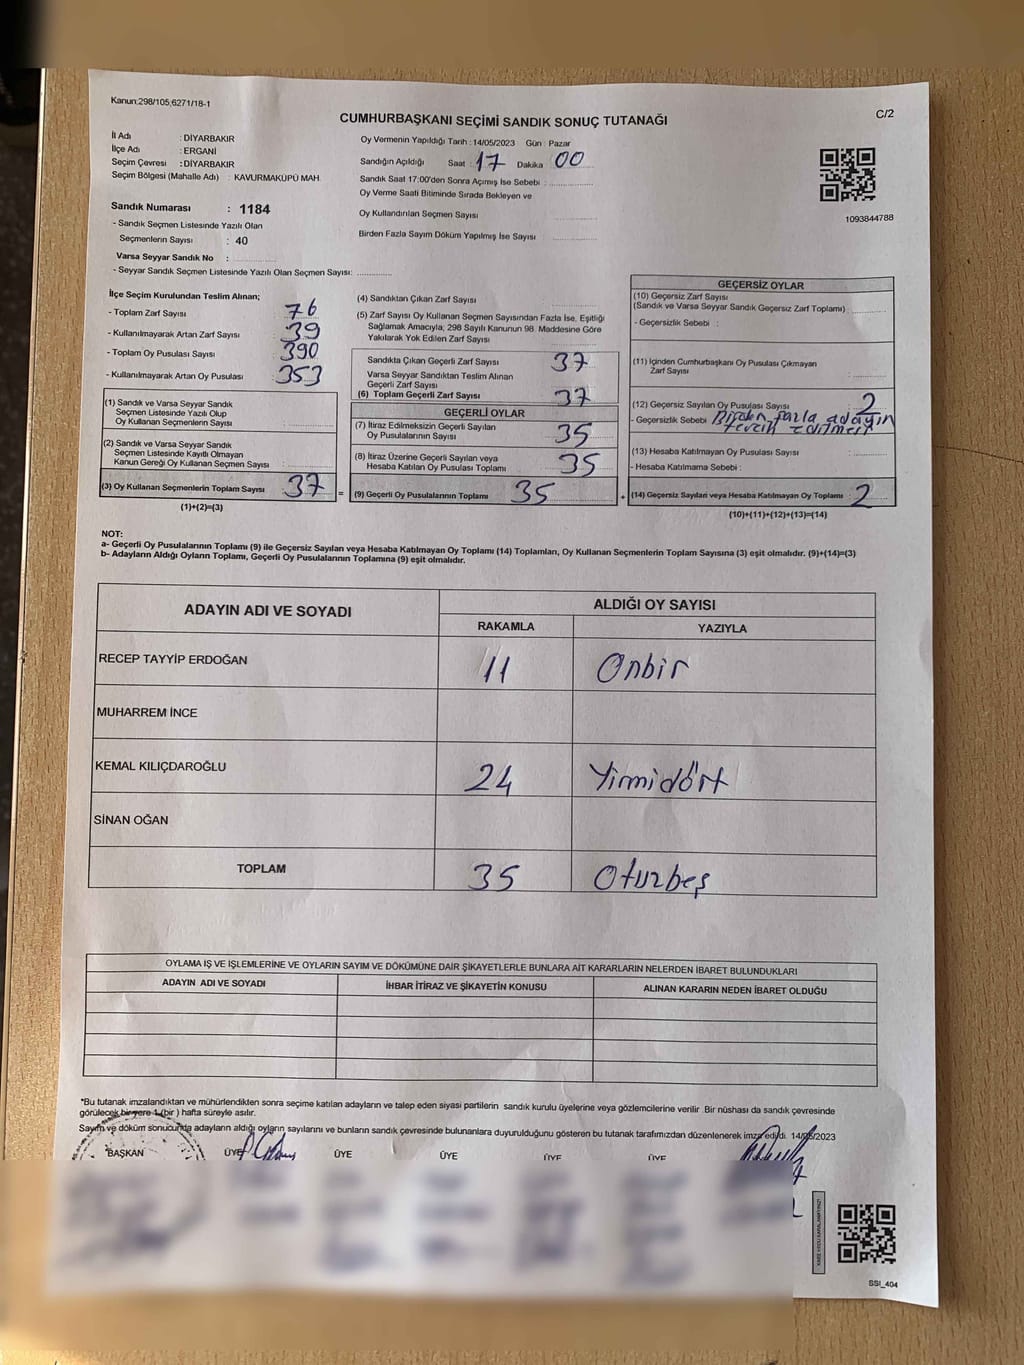 Kanun:298/105,6271/18-1
C/2
CUMHURBAŞKANI SEÇİMİ SANDIK SONUÇ TUTANAĞI
İl Adı : DİYARBAKIR
İlçe Adı : ERGANİ
Seçim Çevresi : DİYARBAKIR
Seçim Bölgesi (Mahalle Adı) : KAVURMAKÜPÜ MAH.
Sandık Numarası : 1184
- Sandık Seçmen Listesinde Yazılı Olan
Seçmenlerin Sayısı : 40
Varsa Seyyar Sandık No :
- Seyyar Sandık Seçmen Listesinde Yazılı Olan Seçmen Sayısı:
Oy Vermenin Yapıldığı Tarih : 14/05/2023 Gün : Pazar
Sandığın Açıldığı Saat : 17 Dakika 00
Sandık Saat 17:00'den Sonra Açımış İse Sebebi :
Oy Verme Saati Bitiminde Sırada Bekleyen ve
Oy Kullandırılan Seçmen Sayısı
Birden Fazla Sayım Döküm Yapılmış İse Sayısı
1093844788
İlçe Seçim Kurulundan Teslim Alınan;
- Toplam Zarf Sayısı 76
- Kullanılmayarak Artan Zarf Sayısı 39
- Toplam Oy Pusulası Sayısı 390
- Kullanılmayarak Artan Oy Pusulası 353
(1) Sandık ve Varsa Seyyar Sandık
Seçmen Listesinde Yazılı Olup
Oy Kullanan Seçmenlerin Sayısı
(2) Sandık ve Varsa Seyyar Sandık
Seçmen Listesinde Kayıtlı Olmayan
Kanun Gereği Oy Kullanan Seçmen Sayısı :
(3) Oy Kullanan Seçmenlerin Toplam Sayısı 37
(1)+(2)=(3)
=
(4) Sandıktan Çıkan Zarf Sayısı
(5) Zarf Sayısı Oy Kullanan Seçmen Sayısından Fazla İse, Eşitliği
Sağlamak Amacıyla; 298 Sayılı Kanunun 98. Maddesine Göre
Yakılarak Yok Edilen Zarf Sayısı
Sandıkta Çıkan Geçerli Zarf Sayısı 37
Varsa Seyyar Sandıktan Teslim Alınan
Geçerli Zarf Sayısı
(6) Toplam Geçerli Zarf Sayısı 37
GEÇERLİ OYLAR
(7) İtiraz Edilmeksizin Geçerli Sayılan
Oy Pusulalarının Sayısı 35
(8) İtiraz Üzerine Geçerli Sayılan veya
Hesaba Katılan Oy Pusulası Toplamı 35
(9) Geçerli Oy Pusulalarının Toplamı 35
+
GEÇERSİZ OYLAR
(10) Geçersiz Zarf Sayısı
(Sandık ve Varsa Seyyar Sandık Geçersiz Zarf Toplamı)
- Geçersizlik Sebebi :
(11) İçinden Cumhurbaşkanı Oy Pusulası Çıkmayan
Zarf Sayısı
(12) Geçersiz Sayılan Oy Pusulası Sayısı 2
- Geçersizlik Sebebi Birden fazla adayın
tercih edilmesi
(13) Hesaba Katılmayan Oy Pusulası Sayısı
- Hesaba Katılmama Sebebi :
(14) Geçersiz Sayılan veya Hesaba Katılmayan Oy Toplamı : 2
(10)+(11)+(12)+(13)=(14)
NOT:
a- Geçerli Oy Pusulalarının Toplamı (9) ile Geçersiz Sayılan veya Hesaba Katılmayan Oy Toplamı (14) Toplamları, Oy Kullanan Seçmenlerin Toplam Sayısına (3) eşit olmalıdır. (9)+(14)=(3)
b- Adayların Aldığı Oyların Toplamı, Geçerli Oy Pusulalarının Toplamına (9) eşit olmalıdır.
ADAYIN ADI VE SOYADI
ALDIĞI OY SAYISI
RAKAMLA YAZIYLA
RECEP TAYYİP ERDOĞAN 11 Onbir
MUHARREM İNCE
KEMAL KILIÇDAROĞLU 24 Yirmidört
SİNAN OĞAN
TOPLAM 35 Oturbeş
OYLAMA İŞ VE İŞLEMLERİNE VE OYLARIN SAYIM VE DÖKÜMÜNE DAİR ŞİKAYETLERLE BUNLARA AİT KARARLARIN NELERDEN İBARET BULUNDUKLARI
ADAYIN ADI VE SOYADI İHBAR İTİRAZ VE ŞİKAYETİN KONUSU ALINAN KARARIN NEDEN İBARET OLDUĞU
*Bu tutanak imzalandıktan ve mühürlendikten sonra seçime katılan adayların ve talep eden siyasi partilerin sandık kurulu üyelerine veya gözlemcilerine verilir .Bir nüshası da sandık çevresinde
görülecek bir yere 1 (bir ) hafta süreyle asılır.
Sayım ve döküm sonucunda adayların aldığı oyların sayılarını ve bunların sandık çevresinde bulunanlara duyurulduğunu gösteren bu tutanak tarafımızdan düzenlenerek imza edildi. 14/05/2023
BAŞKAN ÜYE ÜYE ÜYE ÜYE ÜYE
SSI_404